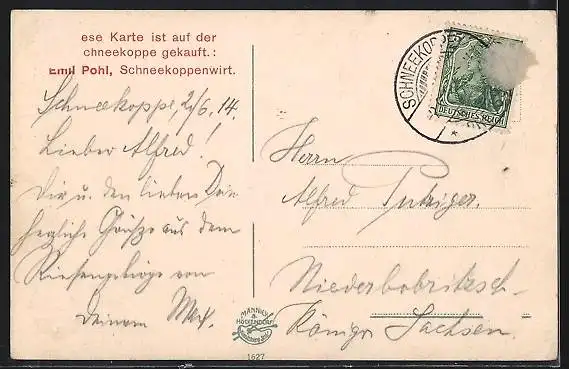 ese Karte ist auf der
chneekoppe gekauft.:
Emil Pohl, Schneekoppenwirt.
Schneekoppe, 2/6. 14.
Lieber Alfred!
Dir u. den lieben
herzliche Grüße aus dem
Riesengebirge von
Deinem
Herrn
Alfred
Niederbobritzsch
Königr. Sachsen.
SCHNEEKOPPE
DEUTSCHES REICH
1627